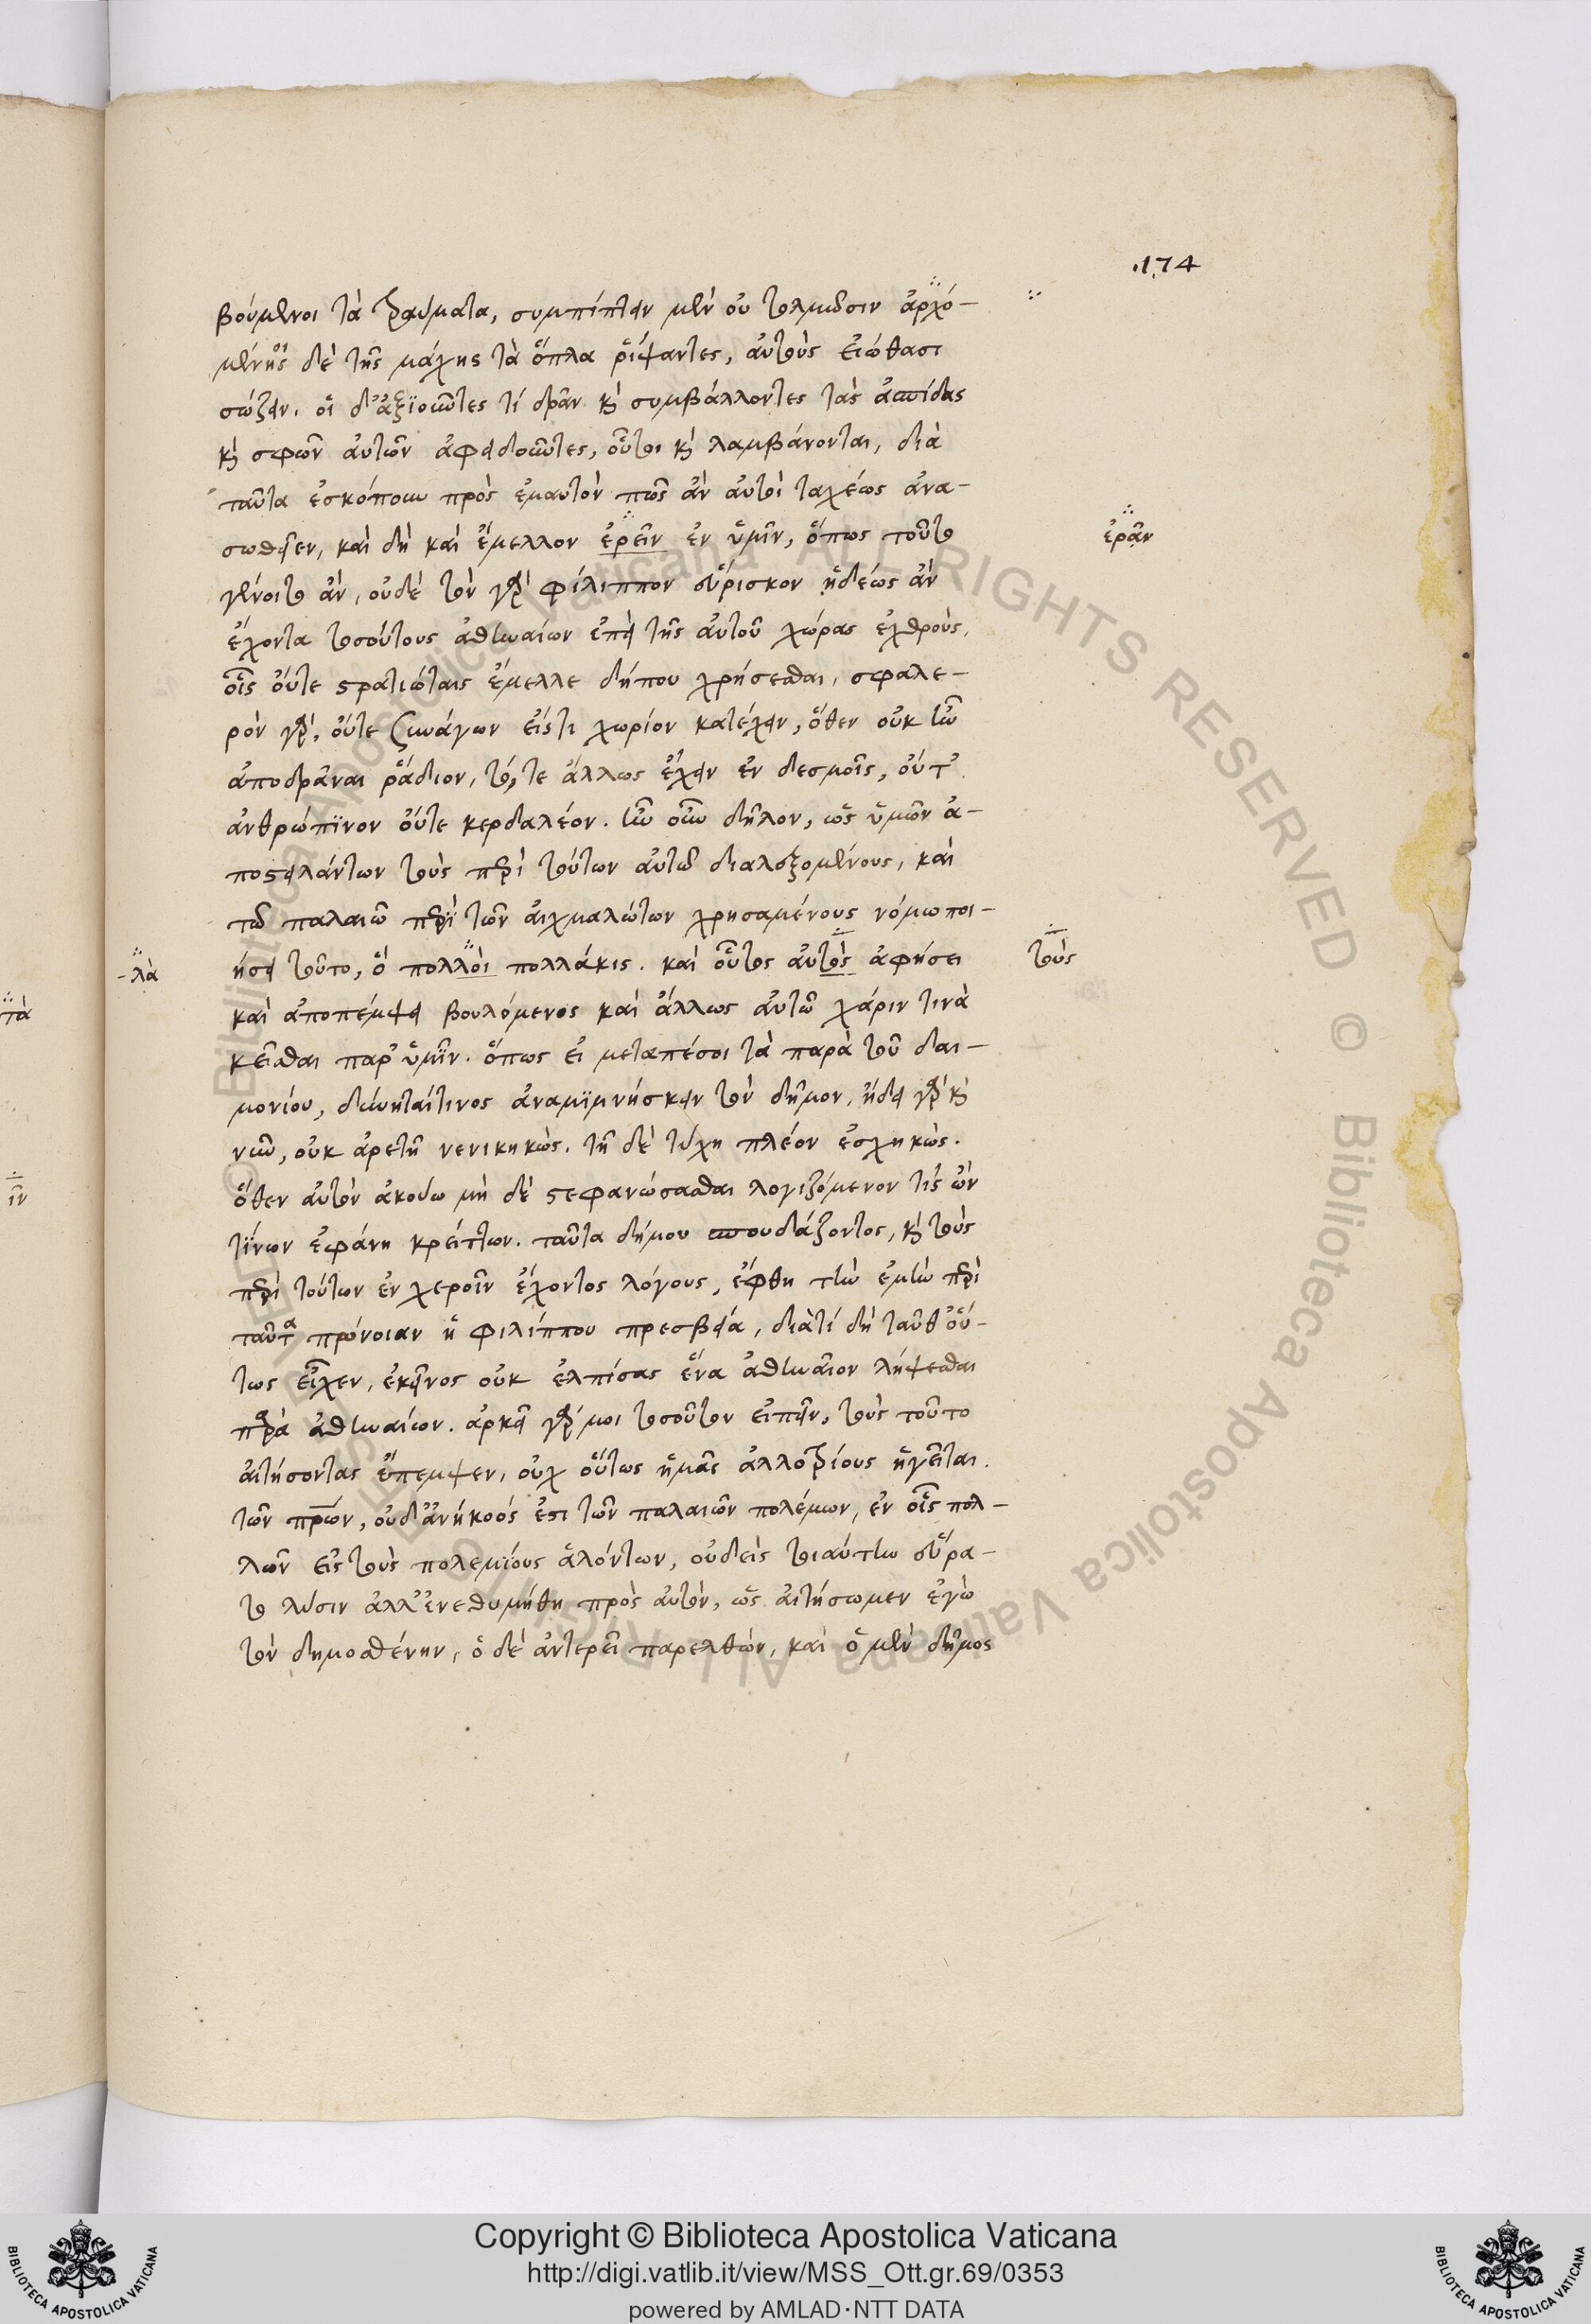 .174
βούμενοι τὰ τραύματα, συμπίπτειν μὲν οὐ τολμῶσιν ἀρχό-
μένης δὲ τῆς μάχης τὰ ὅπλα ῥίψαντες, αὑτοὺς εἰώθασι
σώζειν. οἱ δ' ἀξιοῦντες τί δρᾶν κὶ συμβάλλοντες τὰς ἀσπίδας
κὶ σφῶν αὐτῶν ἀφειδοῦντες, οὗτοι κὶ λαμβάνονται, διὰ
ταῦτα ἐσκόπουν πρὸς ἐμαυτὸν πῶς ἂν αὐτοὶ ταχέως ἀνα-
σωθεῖεν, καὶ δὴ καὶ ἔμελλον ἐρεῖν ἐν ὑμῖν, ὅπως τοῦτο
ἐρᾶν
γένοιτο ἂν, οὐδὲ τὸν γὰρ φίλιππον εὕρισκον ἡδέως ἂν
ἔχοντα τοσούτους ἀθηναίων ἐπὶ τῆς αὑτοῦ χώρας ἐχθροὺς,
οἷς οὔτε στρατιώταις ἔμελλε δήπου χρήσεσθαι, σφαλε-
ρὸν γὰρ, οὔτε συνάγων εἴς τι χωρίον κατέχειν, ὅθεν οὐκ ἦν
ἀποδρᾶναι ῥάδιον, τό, τε ἄλλως ἔχειν ἐν δεσμοῖς, οὔτ'
ἀνθρώπινον οὔτε κερδαλέον. ἦν οὖν δῆλον, ὡς ὑμῶν ἀ-
ποστειλάντων τοὺς περὶ τούτων αὐτῷ διαλεξομένους, καὶ
τῷ παλαιῷ περὶ τῶν αἰχμαλώτων χρησαμένους νόμω ποι-
-λὰ
ήσει τοῦτο, ὃ πολλοὶ πολλάκις. καὶ οὗτος αὐτὸς ἀφήσει
τοὺς
καὶ ἀποπέμψει βουλόμενος καὶ ἄλλως αὑτῷ χάριν τινὰ
κεῖσθαι παρ' ὑμῖν. ὅπως εἰ μεταπέσοι τὰ παρὰ τοῦ δαι-
μονίου, δύνηταί τινος ἀναμιμνήσκειν τὸν δῆμον, ᾔδει γὰρ κὶ
νῦν, οὐκ ἀρετῇ νενικηκὼς. τῇ δὲ τύχη πλέον ἐσχηκὼς.
ὅθεν αὐτὸν ἀκούω μὴ δὲ στεφανώσασθαι λογιζόμενον τίς ὢν
τίνων ἐφάνη κρείττων. ταῦτα δήμου σπουδάζοντος, κὶ τοὺς
περὶ τούτων ἐν χεροῖν ἔχοντος λόγους, ἔφθη τὴν ἐμὴν περὶ
ταῦτα πρόνοιαν ἡ φιλίππου πρεσβεία, διατί δὴ ταῦθ' οὕ-
τως εἶχεν, ἐκεῖνος οὐκ ἐλπίσας ἕνα ἀθηναῖον λήψεσθαι
παρὰ ἀθηναίων. ἀρκεῖ γάρ μοι τοσοῦτον εἰπεῖν, τοὺς τοῦτο
αἰτήσοντας ἔπεμψεν, οὐχ οὕτως ἡμᾶς ἀλλοτρίους ἡγεῖται.
τῶν πρώην, οὐδ' ἀνήκοός ἐστι τῶν παλαιῶν πολέμων, ἐν οἷς πολ-
λῶν εἰς τοὺς πολεμίους ἁλόντων, οὐδεὶς τοιαύτην εὕρα-
το λύσιν ἀλλ' ἐνεθυμήθη πρὸς αὑτὸν, ὡς αἰτήσωμεν ἐγὼ
τὸν δημοσθένην, ὁ δὲ ἀντερεῖ παρελθὼν, καὶ ὁ μὲν δῆμος
τὰ
ῖν
Copyright © Biblioteca Apostolica Vaticana
http://digi.vatlib.it/view/MSS_Ott.gr.69/0353
powered by AMLAD·NTT DATA